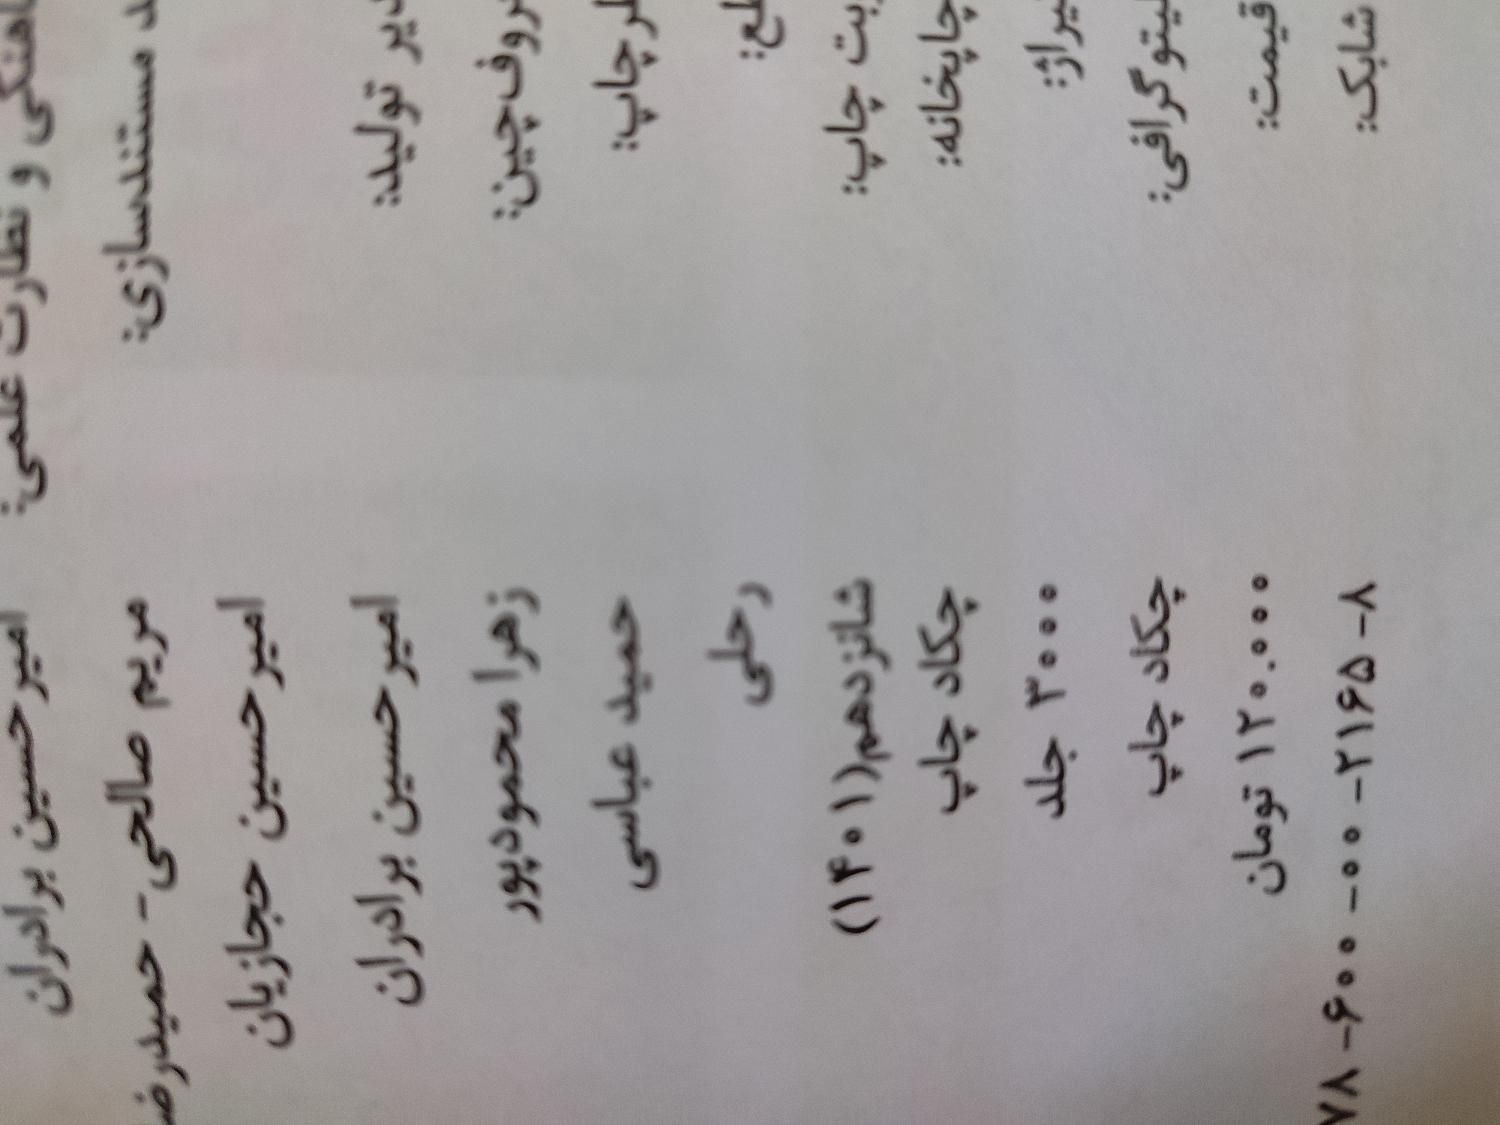 و نظارت علمی: امیرحسین برادران
مستندسازی: مریم صالحی - حمیدرضا
امیرحسین حجازیان
تولید: امیرحسین برادران
زهرا محمودپور
چاپ: حمید عباسی
رحلی
چاپ: شانزدهم(۱۴۰۱)
چاپخانه: چکاد چاپ
۳۰۰۰ جلد
لیتوگرافی: چکاد چاپ
قیمت: ۱۲۰.۰۰۰ تومان
شابک: ۷۸-۶۰۰-۰۰-۲۱۶۵-۸